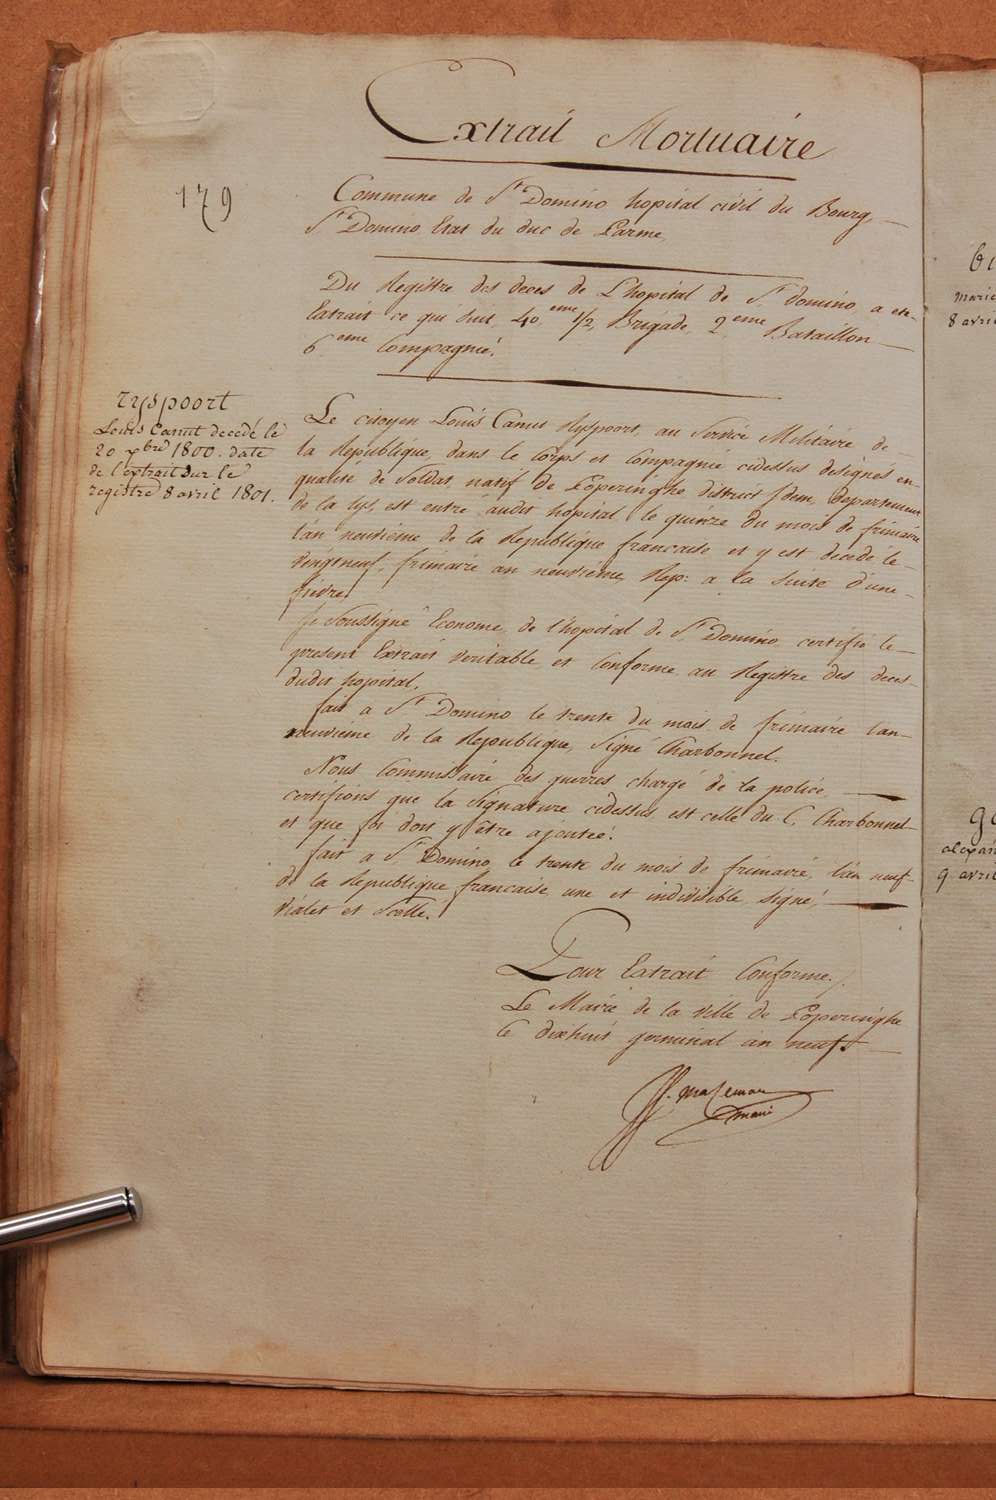 Extrait Mortuaire
179
Commune de St Domino hopital civil du Bourg
St Domino Etat du duc de Parme
Du Registre des deces de L'hopital de St domino, a ete
Extrait ce qui suit, 40eme 1/2 Brigade 2eme Bataillon
6eme Compagnie.
ryspoort
Louis Canut decedé le
20 xbre 1800. date
de l'extrait sur le
registre 8 avril 1801.
Le citoyen Louis Canut Ryspoort, au Service Militaire de
la Republique, dans le Corps et Compagnie cidessus designés en
qualité de Soldat, natif de Poperinghe district Idem, departement
de la Lys, est entré audit hopital le quinze du mois de frimaire
l'an neuvième de la Republique francaise et y est decedé le
vingtneuf frimaire an neuvième Rep: a la suite d'une
fievre.
Je Soussigné Econome de l'hopital de St Domino certifie le
present Extrait veritable et Conforme au Registre des deces
dudit hopital.
fait a St Domino le trente du mois de frimaire l'an
neuvième de la Republique, Signé Charbonnel.
Nous Commissaire des guerres chargé de la police
certifions que la Signature cidessus est celle du C. Charbonnel
et que foi doit y être ajoutée.
fait a St Domino le trente du mois de frimaire, l'an neuf
de la Republique francaise une et indivisible, signé,
Vialet et Scellé.
Pour Extrait Conforme.
Le Maire de la ville de Poperinghe
le dixhuit germinal an neuf.
maire
bu
marie
8 avri
ge
alexan
9 avril